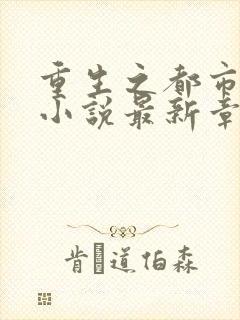 重生之都市
小說最新章
肯 道伯森